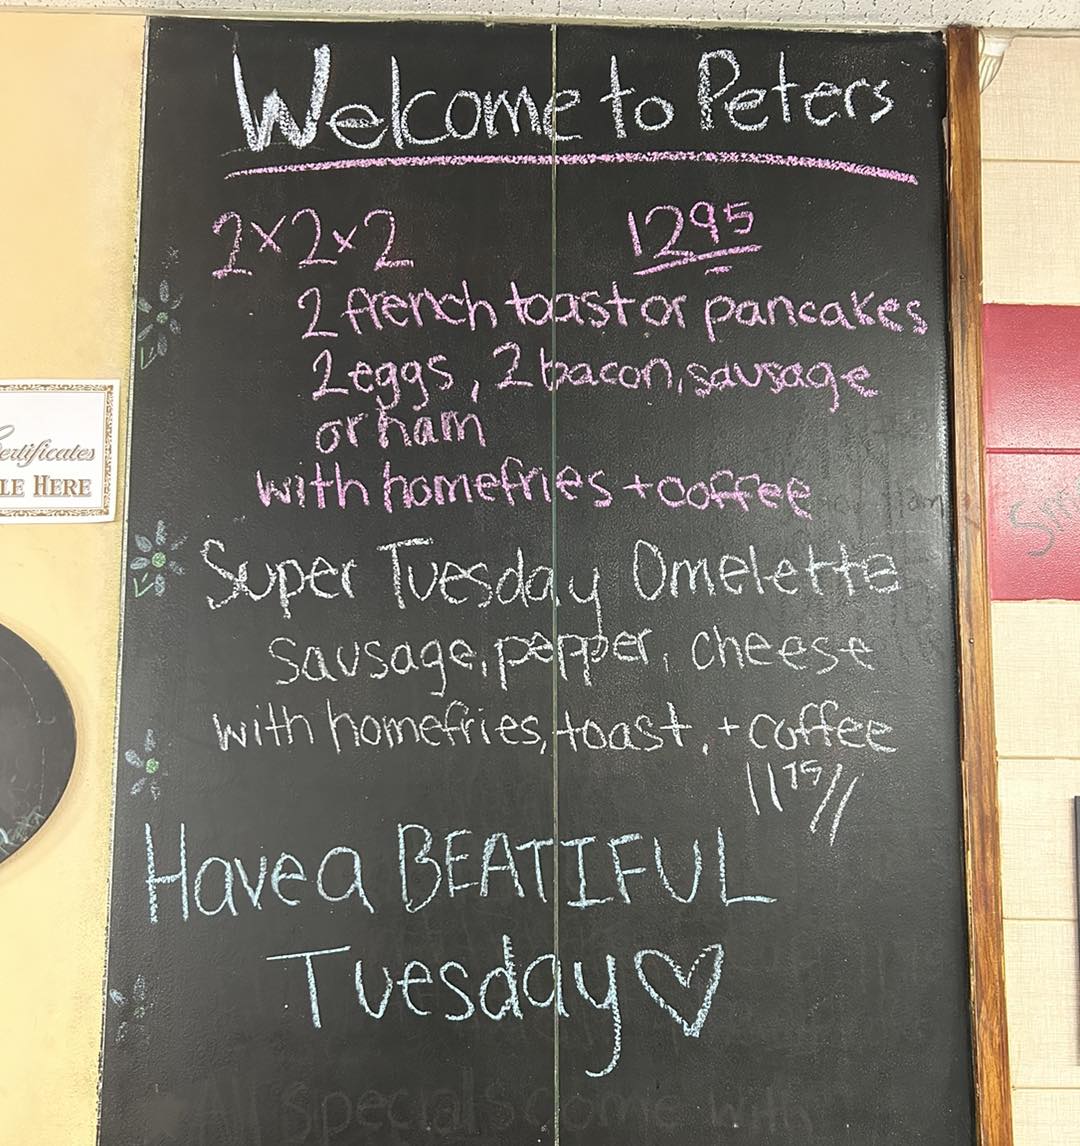 Welcome to Peters
2x2x2 12 95
2 french toast or pancakes
2 eggs, 2 bacon, sausage
or ham
with homefries + coffee
Super Tuesday Omelette
Sausage, pepper, cheese
with homefries, toast, + coffee
11 75//
Have a BEATIFUL
Tuesday
All specials come with
ertificates
LE HERE